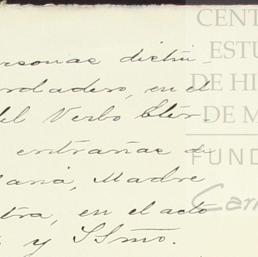 ersonas distin-
erdadero, en el
del Verbo Eter-
entrañas de
María, Madre
tra, en el acto
y SSmo.
CENT
ESTU
DE HI
DE M
FUND
Car